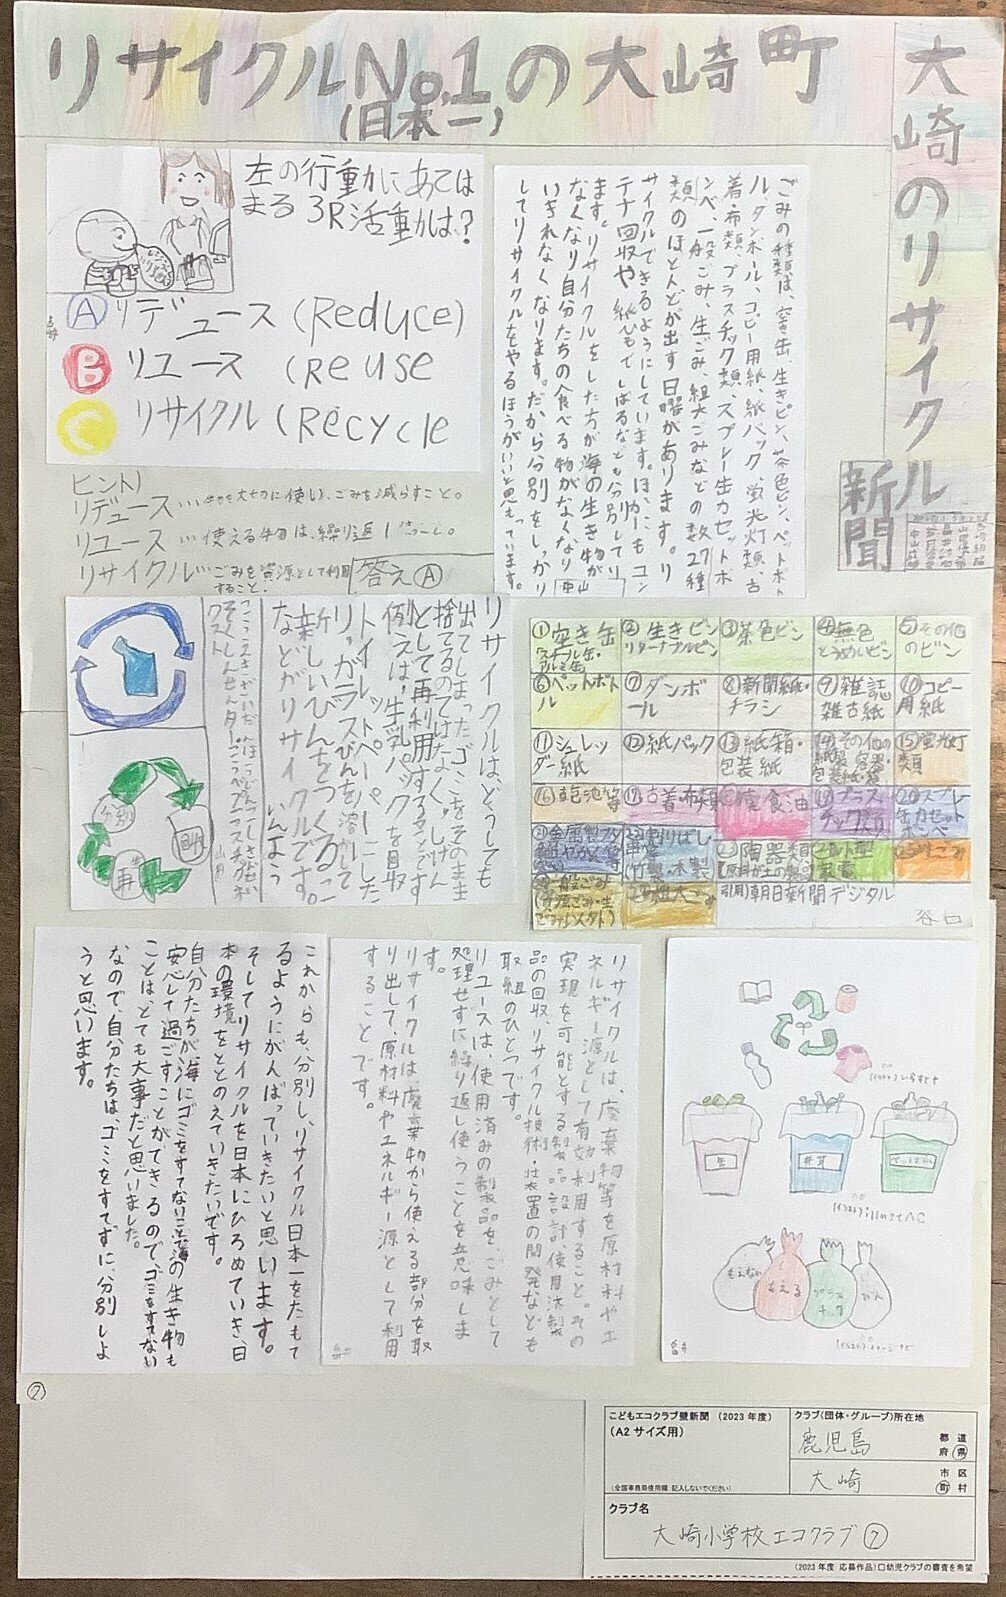 リサイクルNo.1の大崎町
(日本一)
大崎のリサイクル
新聞
左の行動にあては
まる3R活動は?
A リデュース (Reduce)
B リユース (Reuse
C リサイクル (Recycle
ヒント)
リデュース…物を大切に使い、ごみを減らすこと。
リユース…使える物は、繰り返し使うこと。
リサイクル…ごみを資源として利用
すること。
答え A
ごみの種類は、空き缶、生きビン、茶色ビン、ペットボト
ル、ダンボール、コピー用紙、紙パック、蛍光灯類、古
着・布類、プラスチック類、スプレー缶カセットボ
ンベ、一般ごみ、生ごみ、粗大ごみなどの数27種
類のほとんどが出す日曜があります。リ
サイクルできるようにしています。ほかにもコン
テナ回収や紙ひもでしばるなども分別してい
ます。リサイクルをした方が海の生き物が
なくなり自分たちの食べる物がなくなり
いきれなくなります。だから分別をしっかり
してリサイクルをやるほうがいいと思っています。
リサイクルは、どうしても
出てしまったゴミをそのまま
捨てるのではなく、しげん
として再利用することです
例えば、牛乳パックを回収
トイレットペーパーにした
り、ガラスびんを溶かして
新しいびんをつくるっ
などがリサイクルです。
いんよう
分別
回収
再生
①空き缶
スチール缶・アルミ缶
②生きビン
リターナブルビン
③茶色ビン
④無色
とうめいビン
⑤その他
のビン
⑥ペットボト
ル
⑦ダンボ
ール
⑧新聞紙・
チラシ
⑨雑誌
雑古紙
⑩コピー
用紙
⑪シュレッ
ダー紙
⑫紙パック
⑬紙箱・
包装紙
⑭その他の
紙製容器・
包装紙・袋
⑮蛍光灯
類
⑯乾電池等
⑰古着布類
⑱廃食油
⑲プラス
チック類
⑳スプレ
ー缶カセット
ボンベ
割りばし
(竹製・木製
陶器類
小型
家電
生ごみ
一般ごみ
粗大ごみ
引用)朝日新聞デジタル
谷口
これからも、分別し、リサイクル日本一をたもて
るようにがんばっていきたいと思います。
そしてリサイクルを日本にひろめていき、日
本の環境をととのえていきたいです。
自分たちが海にゴミをすてないことで海の生き物も
安心して過ごすことができるので、ゴミをすてない
ことは、とても大事だと思いました。
なので、自分たちは、ゴミをすてずに、分別しよ
うと思います。
リサイクルは、廃棄物等を原材料やエ
ネルギー源として有効利用すること。その
実現を可能とする製品設計、使用済製
品の回収、リサイクル技術・装置の開発なども
取組のひとつです。
リユースは、使用済みの製品を、ごみとして
処理せずに繰り返し使うことを意味しま
す。
リサイクルは廃棄物から使える部分を取
り出して、原材料やエネルギー源として利用
することです。
生
ペットボトル
もえない
もえる
プラス
チック
かん
⑦
こどもエコクラブ壁新聞 (2023年度)
(A2サイズ用)
(全国事務局使用欄 記入しないでください)
クラブ(団体・グループ)所在地
鹿児島
都 道
府 県
大崎
市 区
町 村
クラブ名
大崎小学校エコクラブ⑦
(2023年度 応募作品)□幼児クラブの審査を希望